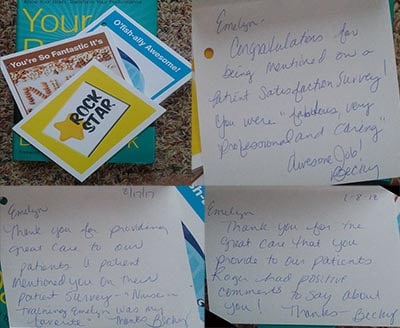 Your
You're So Fantastic It's
O'fish-ally Awesome!
ROCK
STAR
Emelyn:
Congratulations for
being mentioned on a
Patient Satisfaction Survey!
You were "fabulous, very
professional and caring"
Awesome Job!
Becky
2/17/17
Emelyn
Thank you for providing
great care to our
patients A patient
mentioned you on their
patient survey - "Nurse in
Training Emelyn was my
favorite" - Thanks Becky
1-8-18
Emelyn
Thank you for the
great care that you
provide to our patients
Roger had positive
comments to say about
you! Thanks - Becky